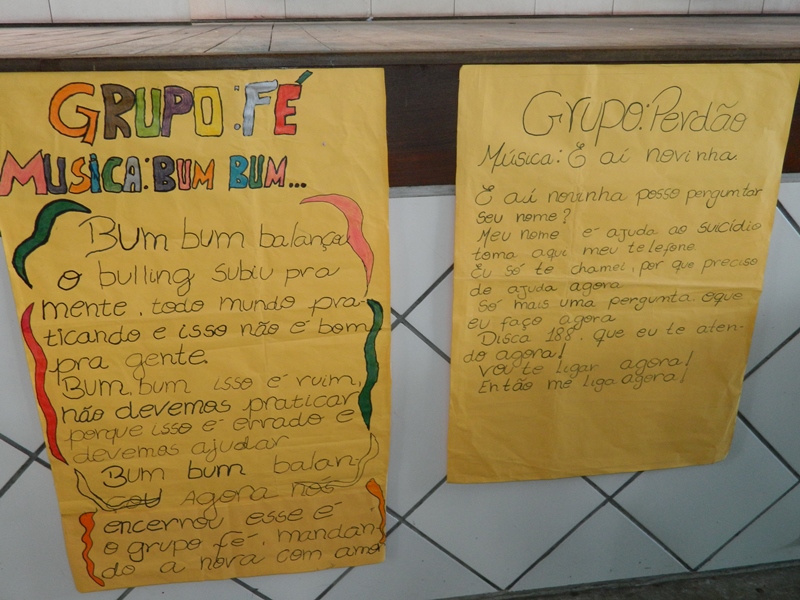 GRUPO:FÉ
MUSICA:BUM BUM...
BUm bum balançou
o bulling subiu pra
mente, todo mundo pra-
ticando e isso não é bom
pra gente.
Bum bum isso é ruim,
não devemos praticar
porque isso é errado e
devemos ajudar
Bum bum balan-
cou Agora nós
encernou esse é
o grupo fé, mandan-
do a nova com amor
Grupo:Perdão
Música: E aí novinha.
E aí novinha posso pergumtar
seu nome?
Meu nome é ajuda ao suicídio
toma aqui meu telefone
Eu só te chamei, por que preciso
de ajuda agora
Só mais uma pergunta. oque
eu faço agora
Disca 188, que eu te aten-
do agora!
Vou te ligar agora!
Então me liga agora!